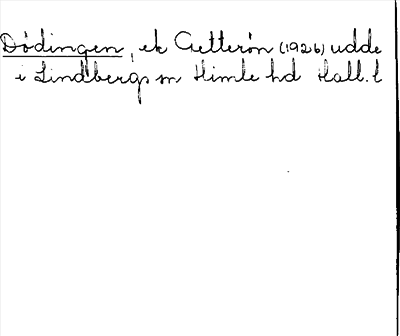 Dödingen, ek Getterön (1926) udde
i Lindbergs sn Himle hd Hall. l